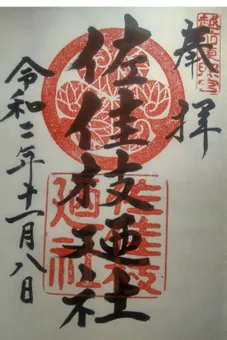 奉拝
佐佳枝廼社
令和二年十一月八日
佐佳枝
廼社